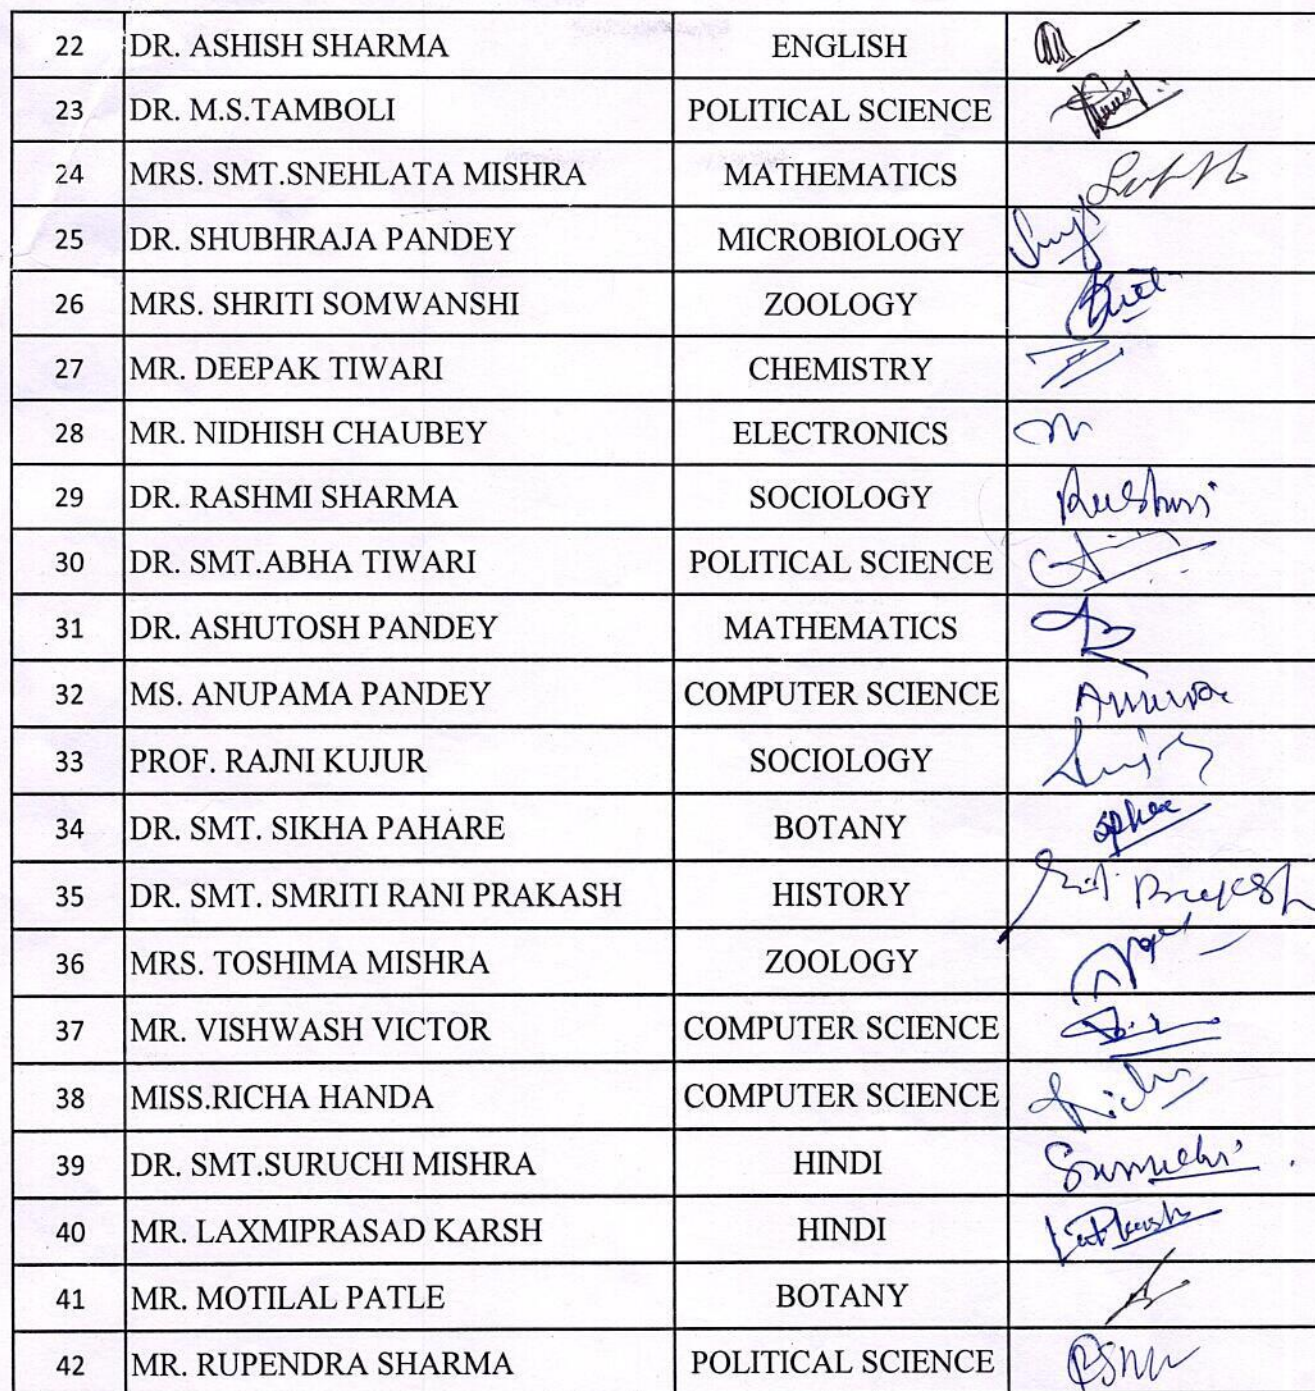 22 DR. ASHISH SHARMA ENGLISH
23 DR. M.S.TAMBOLI POLITICAL SCIENCE
24 MRS. SMT.SNEHLATA MISHRA MATHEMATICS
25 DR. SHUBHRAJA PANDEY MICROBIOLOGY
26 MRS. SHRITI SOMWANSHI ZOOLOGY
27 MR. DEEPAK TIWARI CHEMISTRY
28 MR. NIDHISH CHAUBEY ELECTRONICS
29 DR. RASHMI SHARMA SOCIOLOGY
30 DR. SMT.ABHA TIWARI POLITICAL SCIENCE
31 DR. ASHUTOSH PANDEY MATHEMATICS
32 MS. ANUPAMA PANDEY COMPUTER SCIENCE
33 PROF. RAJNI KUJUR SOCIOLOGY
34 DR. SMT. SIKHA PAHARE BOTANY
35 DR. SMT. SMRITI RANI PRAKASH HISTORY
36 MRS. TOSHIMA MISHRA ZOOLOGY
37 MR. VISHWASH VICTOR COMPUTER SCIENCE
38 MISS.RICHA HANDA COMPUTER SCIENCE
39 DR. SMT.SURUCHI MISHRA HINDI
40 MR. LAXMIPRASAD KARSH HINDI
41 MR. MOTILAL PATLE BOTANY
42 MR. RUPENDRA SHARMA POLITICAL SCIENCE